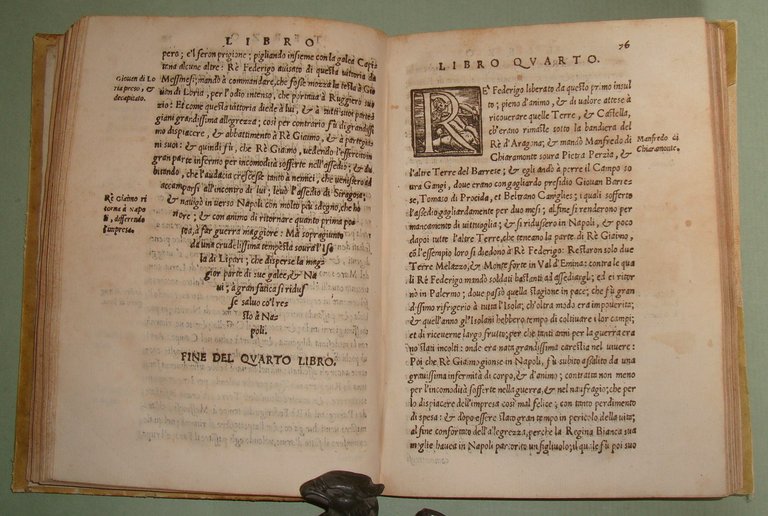 LIBRO
pero; e'l feron prigione; pigliando insieme con la galea Capitana
alcune altre: Rè Federigo auisato di questa vittoria da
Messinesi; mandò a commandare, che fosse mozza la testa à Giouan
di Loria, per l'odio intenso, che portaua à Ruggiero suo
zio: Et come questa vittoria diede à lui, & à tutti suoi partegiani
grandissima allegrezza; così per contrario fù di grandissimo
dispiacere, & abbattimento è Rè Giaimo, & à partegiani
suoi: & quindi fù, che Rè Giaimo, vedendo l'essercito in
gran parte infermo per incomodità sofferte nell'assedio; & dubitando,
che l'audacia crescesse tanto à nemici, che venissero ad
accamparsi all'incontro di lui; leuò l'assedio di Siragosa;
& nauigò in verso Napoli con molto più sdegno, che honore;
& con animo di ritornare quanto prima potea,
à far guerra maggiore: Mà sopragiunto
da una crudelissima tempesta soura l'Isola
di Lipari; che disperse la maggior
parte di sue galee, & Naui;
à gran fatica si ridusse
saluo co'l resto
è Napoli.
Giouan di Loria
preso, &
decapitato.
Rè Giaimo ritorna
à Napoli,
differendo
l'impresa.
FINE DEL QVARTO LIBRO.
76
LIBRO QVARTO.
RE' Federigo liberato da questo primo insulto;
pieno d'animo, & di valore attese à
ricouerare quelle Terre, & Castella,
ch'erano rimaste sotto la bandiera del
Rè d'Aragona; & mandò Manfredo di
Chiaramonte soura Pietra Perzia, &
l'altre Terre del Barrese; & egli andò à porre il Campo soura
Gangi, doue erano con gagliardo presidio Giouan Barrese,
Tomaso di Procida, et Beltrano Caniglies; i quali sofferto
l'assedio gagliardamente per due mesi; al fine si renderono per
mancamento di vittuuaglia; & si ridussero in Napoli, & poco
dapoi tutte l'altre Terre, che teneano la parte di Rè Giaimo,
cō l'essempio loro si diedono à Rè Federigo: Restaron solo due
Terre Melazzo, & Monteforte in Val d'Emina; contra le quali
Rè Federigo mandò soldati bastanti ad assediargli; ed ei ritornò
in Palermo; doue passò quella stagione in pace; che fù grandissimo
rifrigerio à tutta l'Isola; ch'oltra modo era impouerita;
& quell'anno gl'Isolani hebbero tempo di coltiuare i lor campi;
et di riceuerne largo frutto; per che tanti anni per la guerra erano
stati incolti: onde era nata grandissima carestia nel viuere:
Poi che Rè Giaimo gionse in Napoli, fù subito assalito da una
grauissima infermità di corpo, & d'animo; contratta non meno
per l'incomodità sofferte nella guerra, & nel naufragio; che per
lo dispiacere dell'impresa così mal felice; con tanto perdimento
di spesa: & dopo essere stato gran tempo in pericolo della vita;
al fine confortato dell'allegrezza, perche la Regina Bianca sua
moglie hauea in Napoli partorito un figliuolo; il quale fù poi suo
Manfredo di
Chiaramonte.